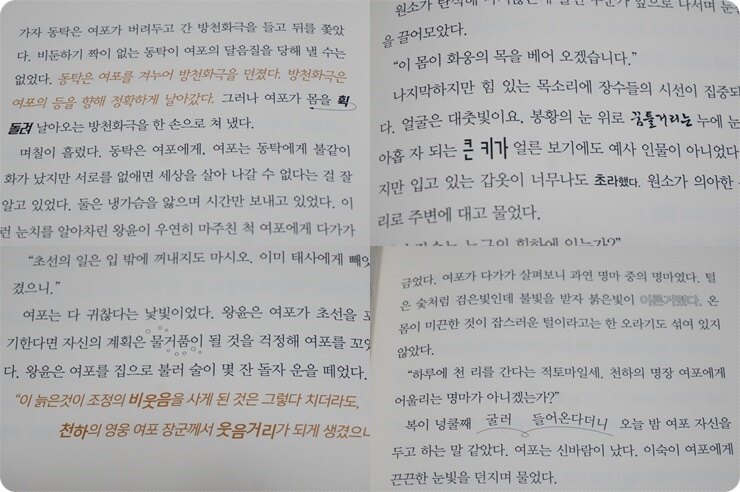 가자 동탁은 여포가 버려두고 간 방천화극을 들고 뒤를 쫓았
다. 비둔하기 짝이 없는 동탁이 여포의 달음질을 당해 낼 수는
없었다. 동탁은 여포를 겨누어 방천화극을 던졌다. 방천화극은
여포의 등을 향해 정확하게 날아갔다. 그러나 여포가 몸을 휙
돌려 날아오는 방천화극을 한 손으로 쳐 냈다.
며칠이 흘렀다. 동탁은 여포에게, 여포는 동탁에게 불같이
화가 났지만 서로를 없애면 세상을 살아 나갈 수 없다는 걸 잘
알고 있었다. 둘은 냉가슴을 앓으며 시간만 보내고 있었다. 이
런 눈치를 알아차린 왕윤이 우연히 마주친 척 여포에게 다가가
원소가 탄식
앞으로 나서며
을 끌어모았다.
"이 몸이 화웅의 목을 베어 오겠습니다."
나지막하지만 힘 있는 목소리에 장수들의 시선이 집중되
다. 얼굴은 대춧빛이요, 봉황의 눈 위로 꿈틀거리는 누에 눈
아홉 자 되는 큰 키가 얼른 보기에도 예사 인물이 아니었다
지만 입고 있는 갑옷이 너무나도 초라했다. 원소가 의아한
리로 주변에 대고 물었다.
"초선의 일은 입 밖에 꺼내지도 마시오. 이미 태사에게 빼앗
겼으니."
여포는 다 귀찮다는 낯빛이었다. 왕윤은 여포가 초선을 포
기한다면 자신의 계획은 물거품이 될 것을 걱정해 여포를 꼬
다. 왕윤은 여포를 집으로 불러 술이 몇 잔 돌자 운을 떼었다.
"이 늙은것이 조정의 비웃음을 사게 된 것은 그렇다 치더라도,
천하의 영웅 여포 장군께서 웃음거리가 되게 생겼으니
금었다. 여포가 다가가 살펴보니 과연 명마 중의 명마였다. 털
은 숯처럼 검은빛인데 불빛을 받자 붉은빛이 어른거렸다. 온
몸이 미끈한 것이 잡스러운 털이라고는 한 오라기도 섞여 있지
않았다.
"하루에 천 리를 간다는 적토마일세. 천하의 명장 여포에게
어울리는 명마가 아니겠는가?"
복이 넝쿨째 굴러 들어온다더니 오늘 밤 여포 자신을
두고 하는 말 같았다. 여포는 신바람이 났다. 이숙이 여포에게
끈끈한 눈빛을 던지며 물었다.